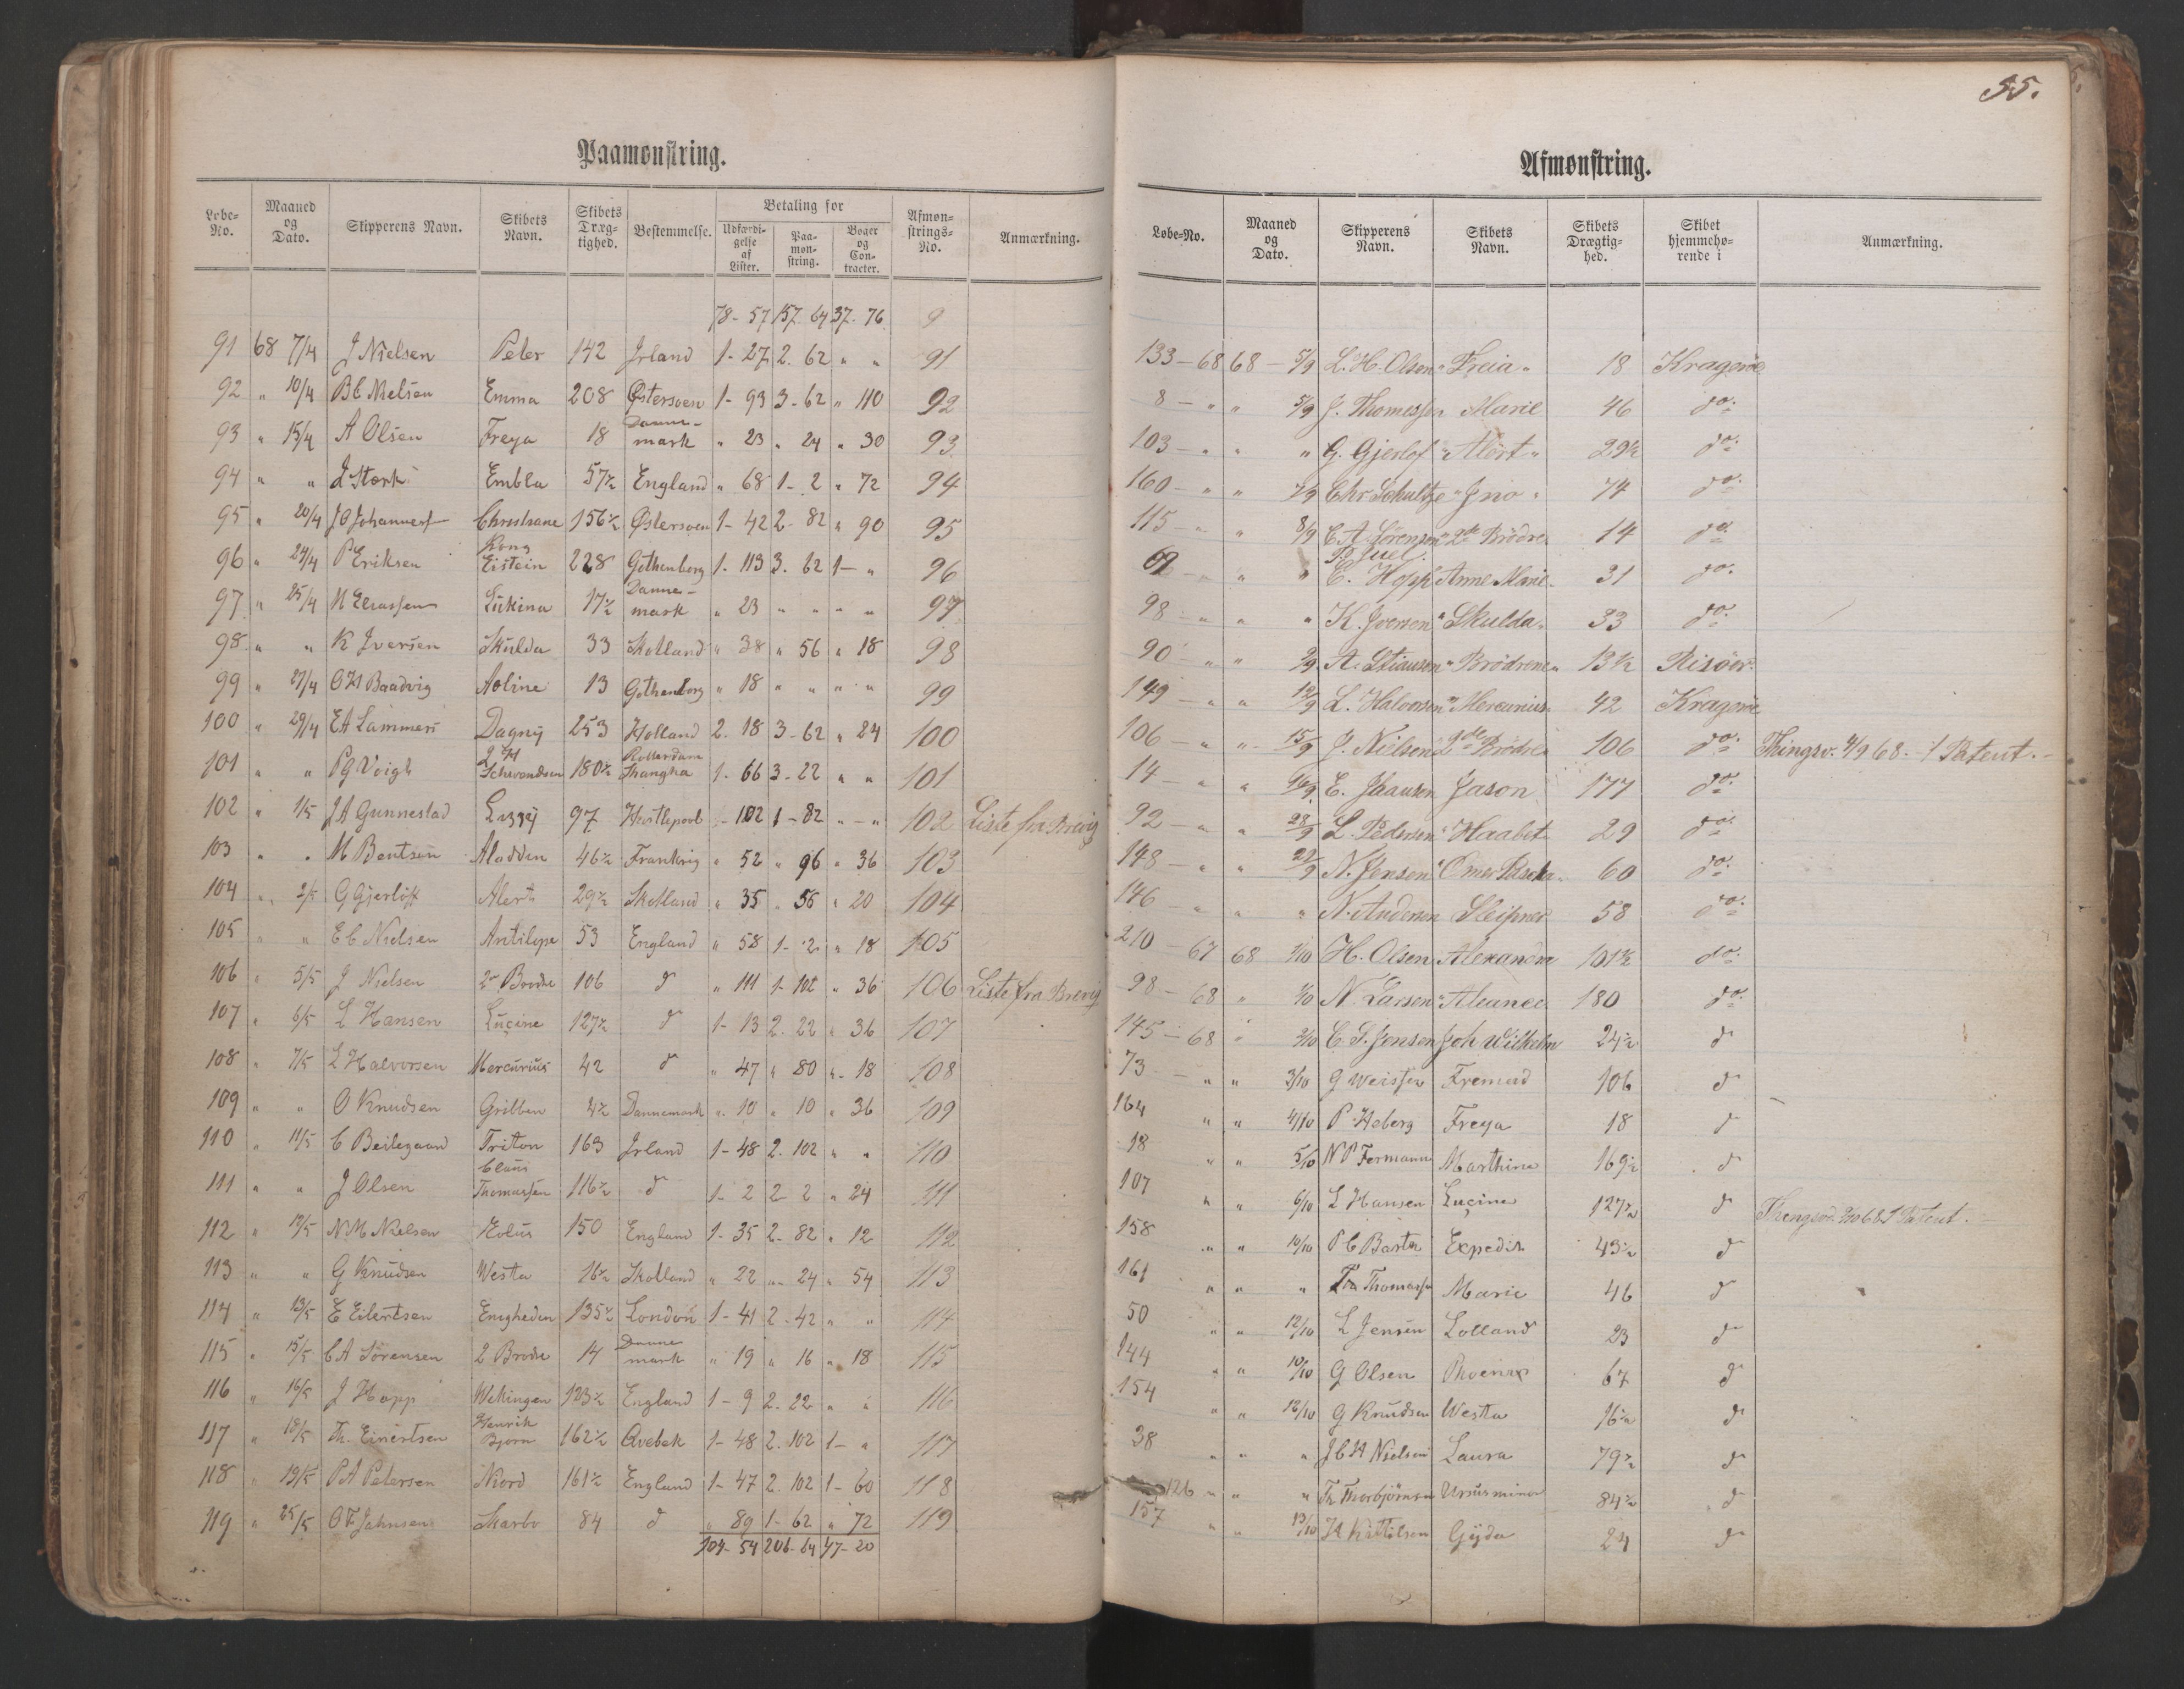 55.
Paamønstring.
Løbe-No. | Maaned og Dato. | Skipperens Navn. | Skibets Navn. | Skibets Dræg-tighed. | Bestemmelse. | Betaling for | Udfærdi-gelse af Lister. | Paa-møn-string. | Bøger og Con-tracter. | Afmøn-strings-No. | Anmærkning.
78-57 157-64 37-76 9
91 68 7/4 J Nielsen Peter 142 Irland 1-27 2-62 " " 91
92 " 10/4 B C Nielsen Emma 208 Østersoen 1-93 3-62 " 110 92
93 " 15/4 A Olsen Freya 18 Danne-mark " 23 " 24 " 30 93
94 " " J Stark Embla 57½ England " 68 1-2 " 72 94
95 " 20/4 J O Johannes Christiane 156½ Østersoen 1-42 2-82 " 90 95
96 " 24/4 P Eriksen Kong Eistein 228 Gothenborg 1-113 3-62 1- " 96
97 " 25/4 N Eliassen Lukina 17½ Danne-mark " 23 " " " " 97
98 " " K Iversen Skulda 33 Skotland " 38 " 56 " 18 98
99 " 27/4 O H Baadvig Aoline 13 Gothenborg " 18 " " " " 99
100 " 29/4 E A Lammers Dagny 253 Holland 2-18 3-62 " 24 100
101 " " P G Voigh 2 H Schwendsen 180½ Rotterdam Shangha 1-66 3-22 " " 101
102 " 1/5 J A Gunnestad Lizzy 97 Hartlepool -102 1-82 " - " 102 Liste fra Brevig
103 " " M Bentsen Aladden 46½ Frankrig " 52 " 96 " 36 103
104 " 2/5 G Gjerløff Alert 29½ Skotland " 35 " 56 " 20 104
105 " " E C Nielsen Antilope 53 England " 58 1-2 " 18 105
106 " 5/5 J Nielsen 2de Brødre 106 d " 111 1-102 " 36 106 Liste fra Brevig
107 " 6/5 L Hansen Lucine 127½ d 1-13 2-22 " 36 107
108 " 7/5 L Halvorsen Mercurius 42 d " 47 " 80 " 18 108
109 " " O Knudsen Gribben 4½ Dannemark " 10 " 10 " 36 109
110 " 11/5 C Beilegaard Triton 163 Irland 1-48 2-102 " " 110
111 " " J Olsen Claus Thomassen 116½ d 1-2 2-2 " 24 111
112 " 12/5 N M Nielsen Eolus 150 England 1-35 2-82 " 12 112
113 " " G Knudsen Westa 16½ Skotland " 22 " 24 " 54 113
114 " 13/5 E Eilertsen Enigheden 135½ London 1-41 2-42 " " 114
115 " 15/5 C A Sørensen 2 Brødre 14 Danne mark " 19 " 16 " 18 115
116 " 16/5 J Hopp Wikingen 123½ England 1-9 2-22 " " 116
117 " 18/5 Th. Einertsen Henrik Bjørn 162½ Qvebek 1-48 2-102 1- " 117
118 " 19/5 P A Petersen Niord 161½ England 1-47 2-102 1-60 118
119 " 25/5 O F Jahnsen Skarbo 84 d " 89 1-62 " 72 119
104-54 206-64 47-20
Afmønstring.
Løbe-No. | Maaned og Dato. | Skipperens Navn. | Skibets Navn. | Skibets Drægtig-hed. | Skibet hjemmehø-rende i | Anmærkning.
133-68 68-5/9 L. H. Olsen "Freia" 18 Kragerøe
8 - " " 5/9 J. Thomessen Marie 46 do.
103 - " " " G. Gjerlof "Alert" 29½ do.
160 - " " 7/9 Chr Schultze "Ino" 74 do.
115 - " " 8/9 C. A. Sörensen 2de Brödre 14 do.
69 - " " " P. Juel. C. Hopp Anne Marie 31 do.
98 - " " " K. Iversen "Skulda" 33 do.
90 - " " 9/9 A. Stiansen "Brödrene" 13½ Risöer.
149 - " " 12/9 L. Halvorsen "Mercurius" 42 Kragerøe
106 - " " 15/9 J. Nielsen 2de Brödre 106 do. Thingsv. 4/9 68. - 1 Patent. -
14 - " " 16/9 E. Isaacsen Jason 177 do.
92 - " " 28/9 L. Pedersen "Haabet" 29 do.
148 - " " 29/9 N. Jensen "Omer Pascha" 60 do.
146 - " " " N. Andersen Sleipner 58 do.
210-67 68 1/10 H. Olsen Alexandra 101½ do.
98-68 " 1/10 N. Larsen "Aliance" 180 do.
145-68 " 2/10 C. F. Jensen Joh Wilhelm 24½ d
73 - " " 3/10 G Weissen Fremad 106 d
164 " " 4/10 P Heberg Freya 18 d
18 " " 5/10 N P Formann Marthine 169½ d
107 " " 6/10 L Hansen Lucine 127½ d Thengsv. 2/10 68 1 Patent. -
158 " " 10/10 P C Barth Expedit 43½ d
161 " " " Thomassen Marie 46 d
50 " " 12/10 L Jensen Lolland 23 d
144 " " 10/10 G Olsen Phoenix 67 d
154 " " 12/10 G Knudsen Westa 16½ d
38 " " " J C H Nielsen Laura 79½ d
126 " " " Th Thorbjørnsen Ursus minor 84½ d
157 " " 13/10 H Kittilsen Gyda 24 d